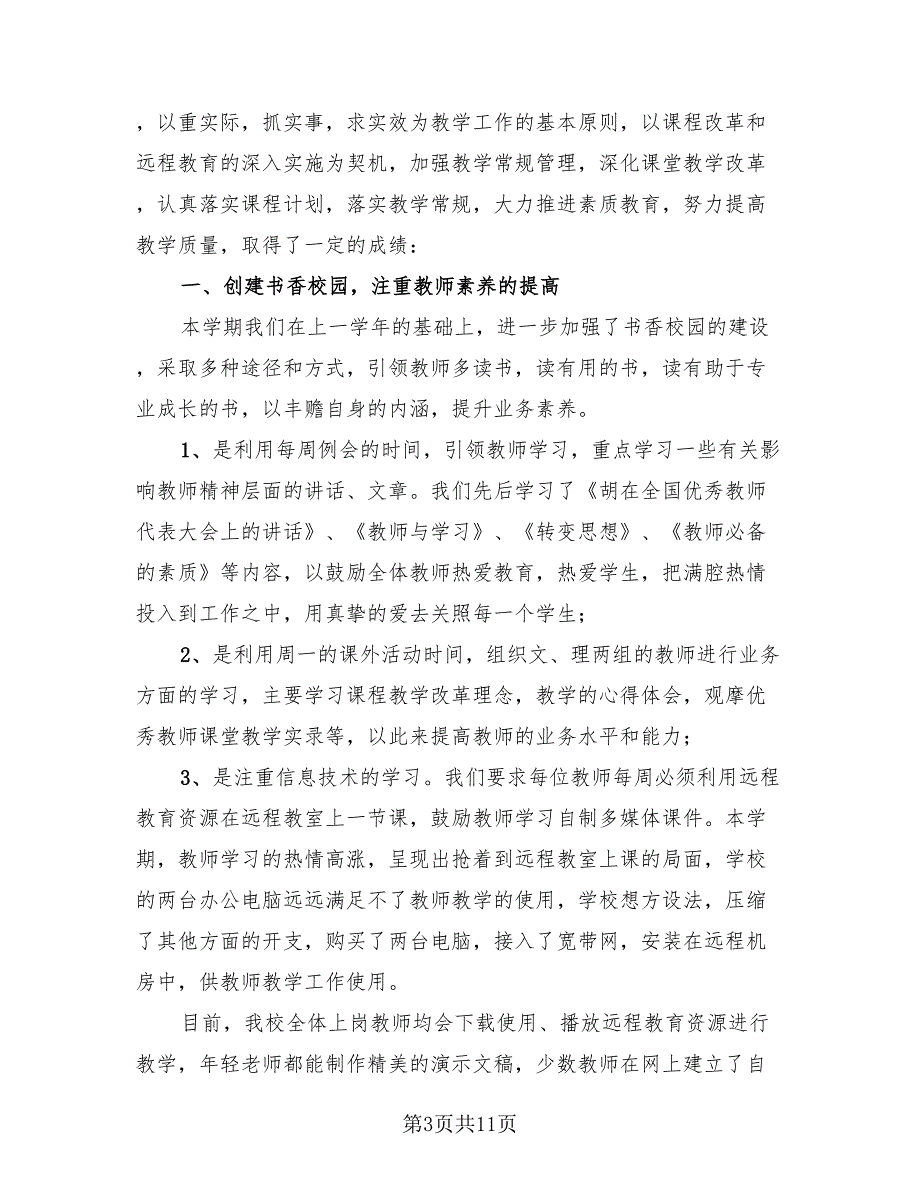 ，以重实际，抓实事，求实效为教学工作的基本原则，以课程改革和
远程教育的深入实施为契机，加强教学常规管理，深化课堂教学改革
，认真落实课程计划，落实教学常规，大力推进素质教育，努力提高
教学质量，取得了一定的成绩：
一、创建书香校园，注重教师素养的提高
本学期我们在上一学年的基础上，进一步加强了书香校园的建设
，采取多种途径和方式，引领教师多读书，读有用的书，读有助于专
业成长的书，以丰赡自身的内涵，提升业务素养。
1、是利用每周例会的时间，引领教师学习，重点学习一些有关影
响教师精神层面的讲话、文章。我们先后学习了《胡在全国优秀教师
代表大会上的讲话》、《教师与学习》、《转变思想》、《教师必备
的素质》等内容，以鼓励全体教师热爱教育，热爱学生，把满腔热情
投入到工作之中，用真挚的爱去关照每一个学生；
2、是利用周一的课外活动时间，组织文、理两组的教师进行业务
方面的学习，主要学习课程教学改革理念，教学的心得体会，观摩优
秀教师课堂教学实录等，以此来提高教师的业务水平和能力；
3、是注重信息技术的学习。我们要求每位教师每周必须利用远程
教育资源在远程教室上一节课，鼓励教师学习自制多媒体课件。本学
期，教师学习的热情高涨，呈现出抢着到远程教室上课的局面，学校
的两台办公电脑远远满足不了教师教学的使用，学校想方设法，压缩
了其他方面的开支，购买了两台电脑，接入了宽带网，安装在远程机
房中，供教师教学工作使用。
目前，我校全体上岗教师均会下载使用、播放远程教育资源进行
教学，年轻老师都能制作精美的演示文稿，少数教师在网上建立了自
第3页共11页